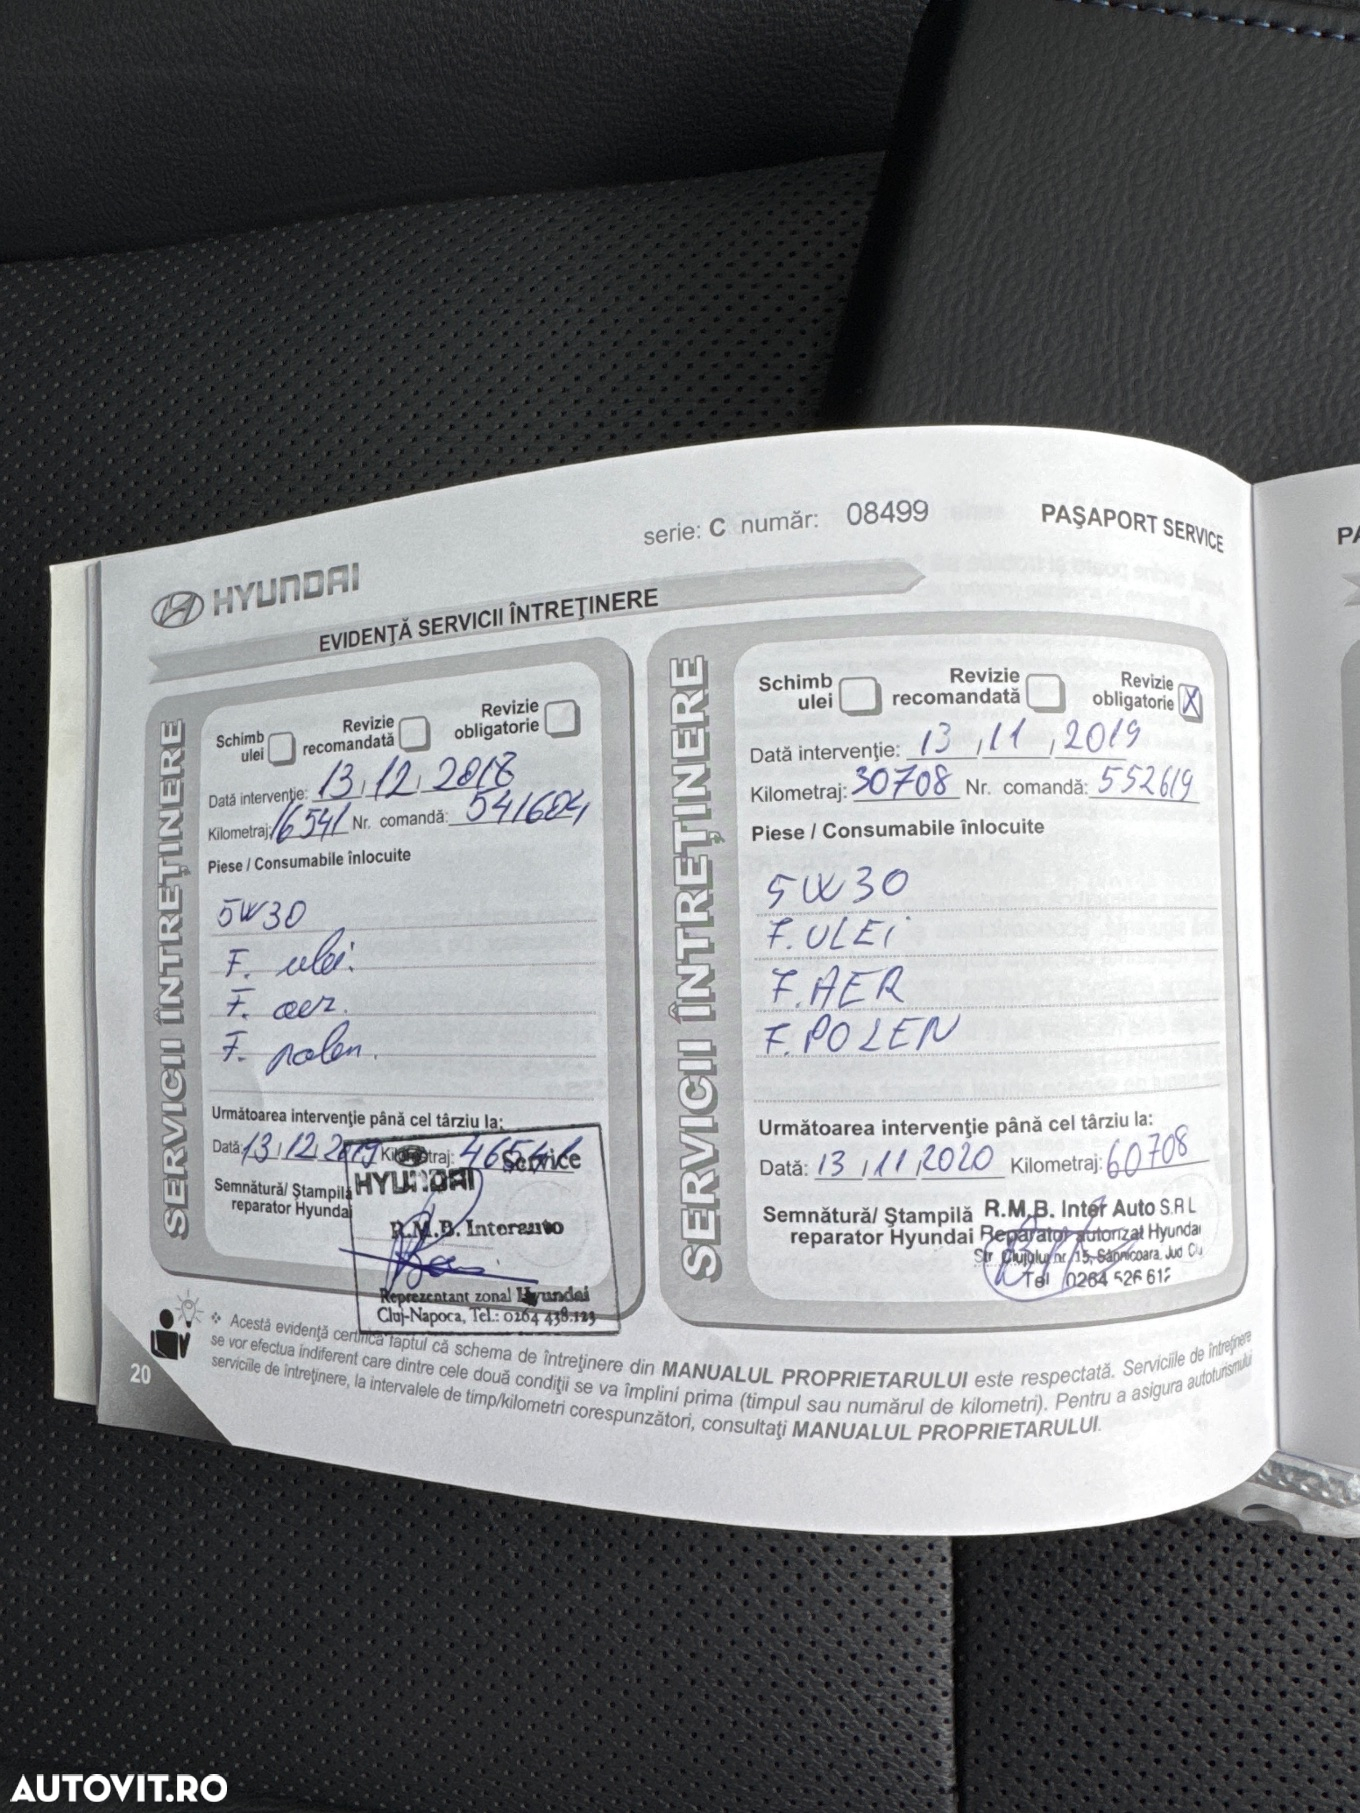 serie: C număr: 08499 PAŞAPORT SERVICE
HYUNDAI
EVIDENŢĂ SERVICII ÎNTREŢINERE
SERVICII ÎNTREŢINERE
Schimb ulei
Revizie recomandată
Revizie obligatorie
Dată intervenţie: 13, 12, 2018
Kilometraj: 16541 Nr. comandă: 541604
Piese / Consumabile înlocuite
5W30
F. ulei.
F. aer.
F. polen.
Următoarea intervenţie până cel târziu la:
Dată: 13, 12, 2019 Kilometraj: 46541
Semnătură/ Ştampilă
reparator Hyundai
Service
HYUNDAI
R.M.B. Interauto
Reprezentant zonal Hyundai
Cluj-Napoca, Tel.: 0264 438.123
SERVICII ÎNTREŢINERE
Schimb ulei
Revizie recomandată
Revizie obligatorie X
Dată intervenţie: 13, 11, 2019
Kilometraj: 30708 Nr. comandă: 552619
Piese / Consumabile înlocuite
5W30
F. ULEI
F. AER
F. POLEN
Următoarea intervenţie până cel târziu la:
Dată: 13, 11, 2020 Kilometraj: 60708
Semnătură/ Ştampilă
reparator Hyundai
R.M.B. Inter Auto S.R.L
Reparator autorizat Hyundai
Str. Clujului nr. 15, Sânnicoara, Jud Clu
Tel 0264 526 612
❖ Acestă evidenţă certifică faptul că schema de întreţinere din MANUALUL PROPRIETARULUI este respectată. Serviciile de întreţinere
se vor efectua indiferent care dintre cele două condiţii se va împlini prima (timpul sau numărul de kilometri). Pentru a asigura autoturismului
serviciile de întreţinere, la intervalele de timp/kilometri corespunzători, consultaţi MANUALUL PROPRIETARULUI.
20
PA
AUTOVIT.RO